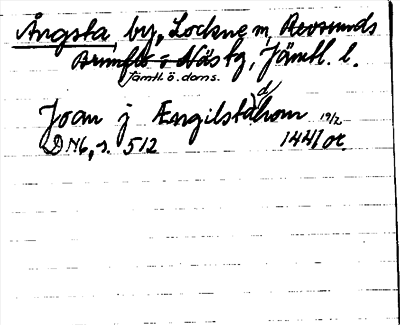 Ångsta, by, Lockne sn, Revsunds
Brunflo o Näs tg, Jämtl. l.
Jämtl. ö. doms.
Joan j Ængilstadhom 19/2
DN6, s. 512 1441 or.